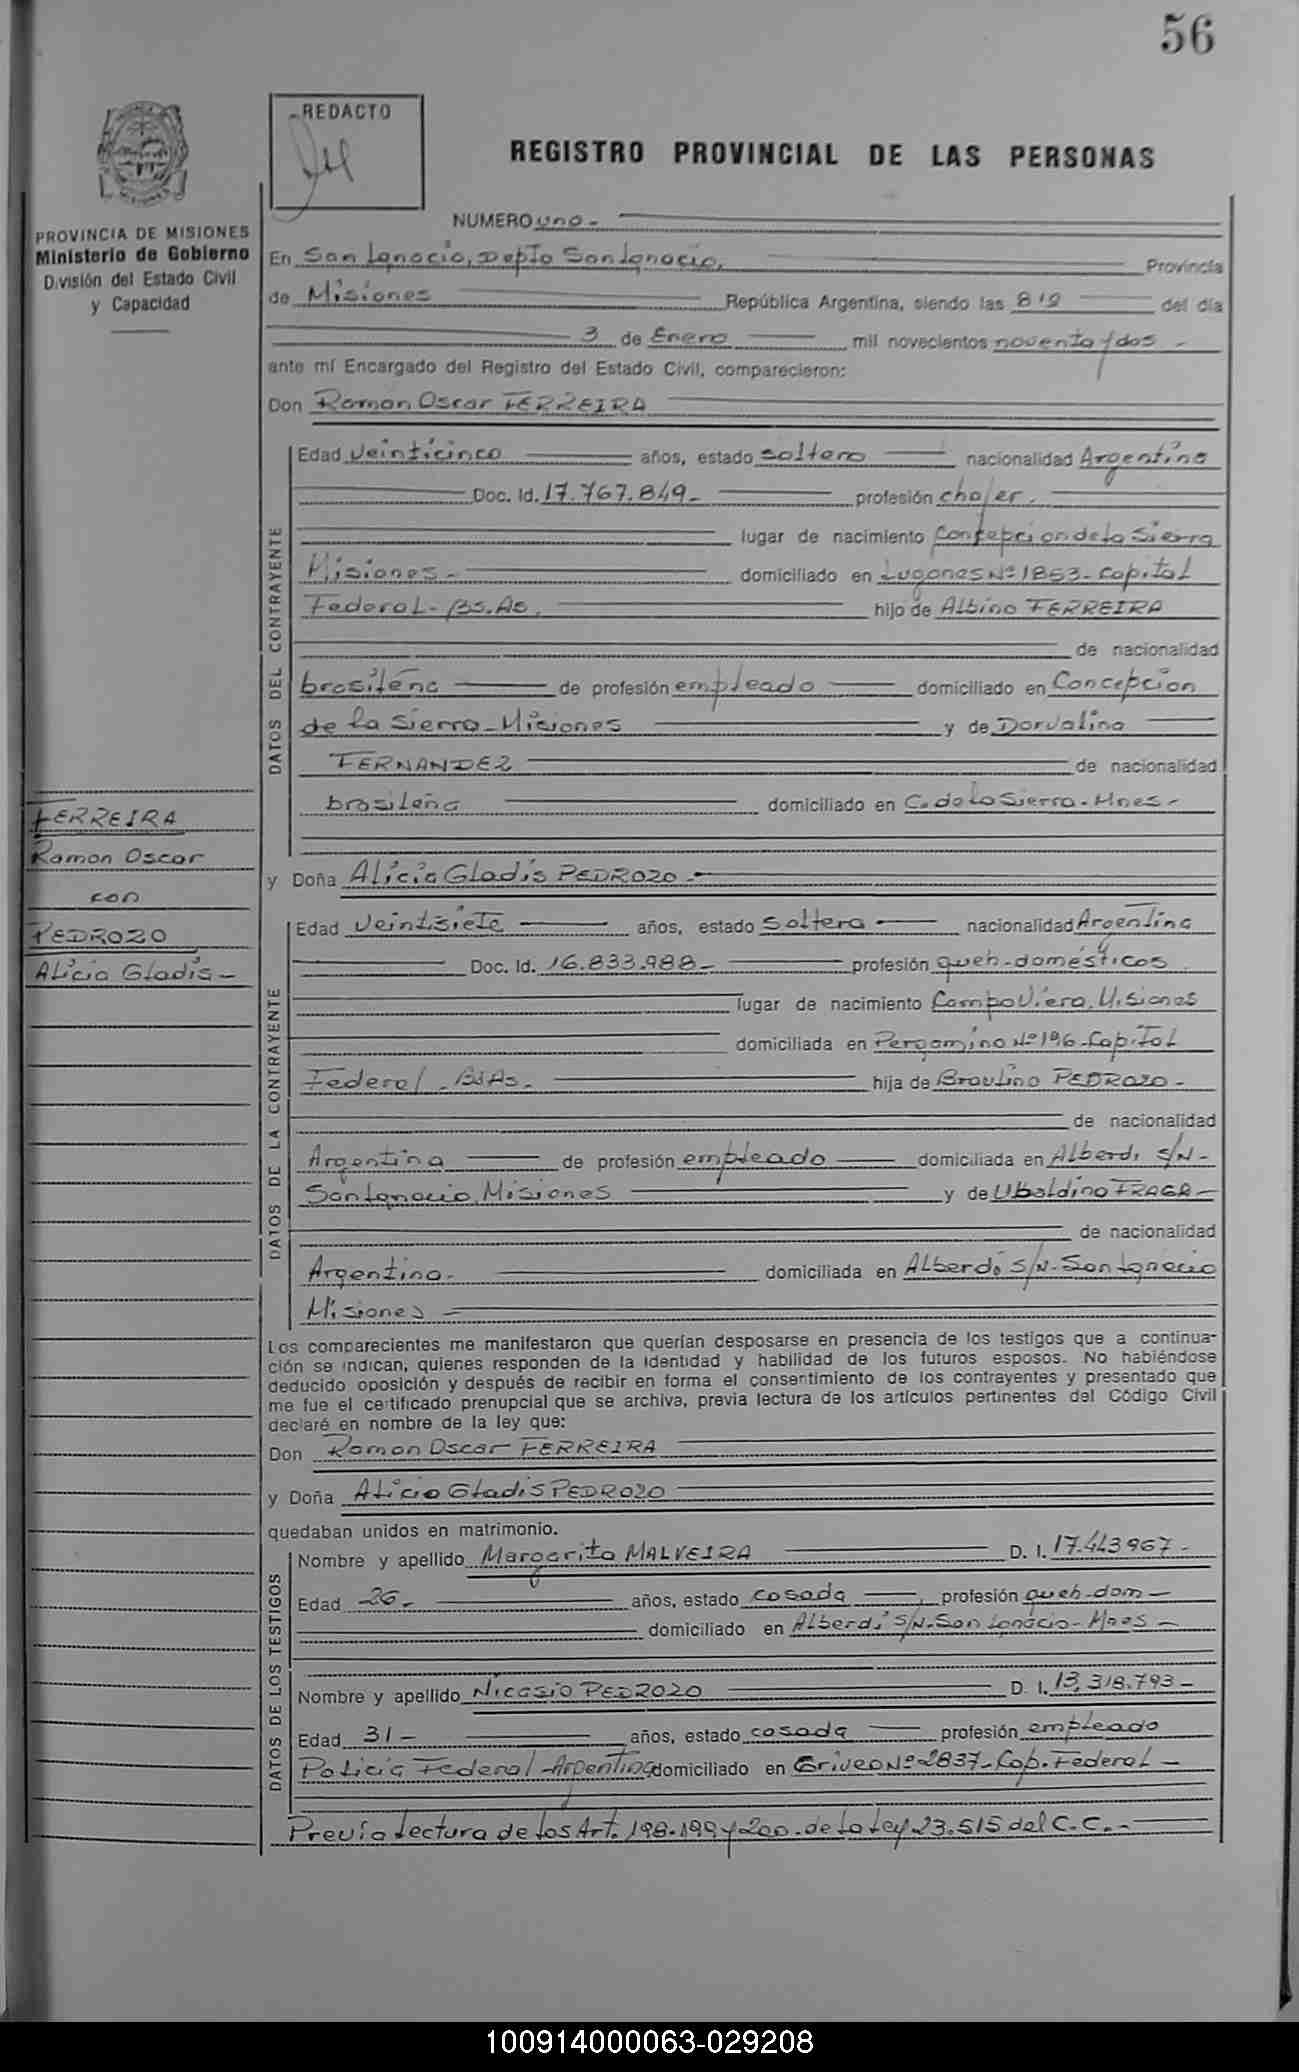 56
REDACTO
REGISTRO PROVINCIAL DE LAS PERSONAS
PROVINCIA DE MISIONES
Ministerio de Gobierno
División del Estado Civil
y Capacidad
NUMERO uno -
En San Ignacio, Depto San Ignacio, Provincia
de Misiones República Argentina, siendo las del día
3 de Enero mil novecientos noventa y dos -
ante mí Encargado del Registro del Estado Civil, comparecieron:
Don Ramon Oscar FERREIRA
DATOS DEL CONTRAYENTE
Edad veinticinco años, estado soltero nacionalidad Argentina
Doc. Id. 17.767.849 - profesión chofer.
lugar de nacimiento Concepcion de la Sierra
Misiones - domiciliado en Lugones Nº 1853 - Capital
Federal - Bs. As. hijo de Albino FERREIRA
de nacionalidad
brasileña de profesión empleado domiciliado en Concepcion
de la Sierra - Misiones y de Dorvalina
FERNANDEZ de nacionalidad
brasileña domiciliado en C. de la Sierra - Mnes -
FERREIRA
Ramon Oscar
con
PEDROZO
Alicia Gladis -
y Doña Alicia Gladis PEDROZO -
DATOS DE LA CONTRAYENTE
Edad veintisiete años, estado soltera nacionalidad Argentina
Doc. Id. 16.833.988 - profesión queh - domésticos
lugar de nacimiento Campo Viera, Misiones
domiciliada en Pergamino Nº 196 - Capital
Federal - Bs As. hija de Braulino PEDROZO -
de nacionalidad
Argentina de profesión empleado domiciliada en Alberdi S/N -
San Ignacio, Misiones y de Ubaldina FRAGA -
de nacionalidad
Argentina - domiciliada en Alberdi S/N - San Ignacio
Misiones
Los comparecientes me manifestaron que querían desposarse en presencia de los testigos que a continua-
ción se indican, quienes responden de la identidad y habilidad de los futuros esposos. No habiéndose
deducido oposición y después de recibir en forma el consentimiento de los contrayentes y presentado que
me fue el certificado prenupcial que se archiva, previa lectura de los artículos pertinentes del Código Civil
declaré en nombre de la ley que:
Don Ramon Oscar FERREIRA
y Doña Alicia Gladis PEDROZO
quedaban unidos en matrimonio.
DATOS DE LOS TESTIGOS
Nombre y apellido Margarita MALVEIRA D. I. 17.443967 -
Edad 26 - años, estado casada, profesión queh - dom -
domiciliado en Alberdi S/N - San Ignacio - Mnes -
Nombre y apellido Nicasio PEDROZO D. I. 13,318.793 -
Edad 31 - años, estado casada profesión empleado
Policia Federal Argentina domiciliado en Nº 2837 - Cap. Federal -
Previa lectura de los Art. 198 - 199 y 200 - de la Ley 23.515 del C. C. -
100914000063-029208